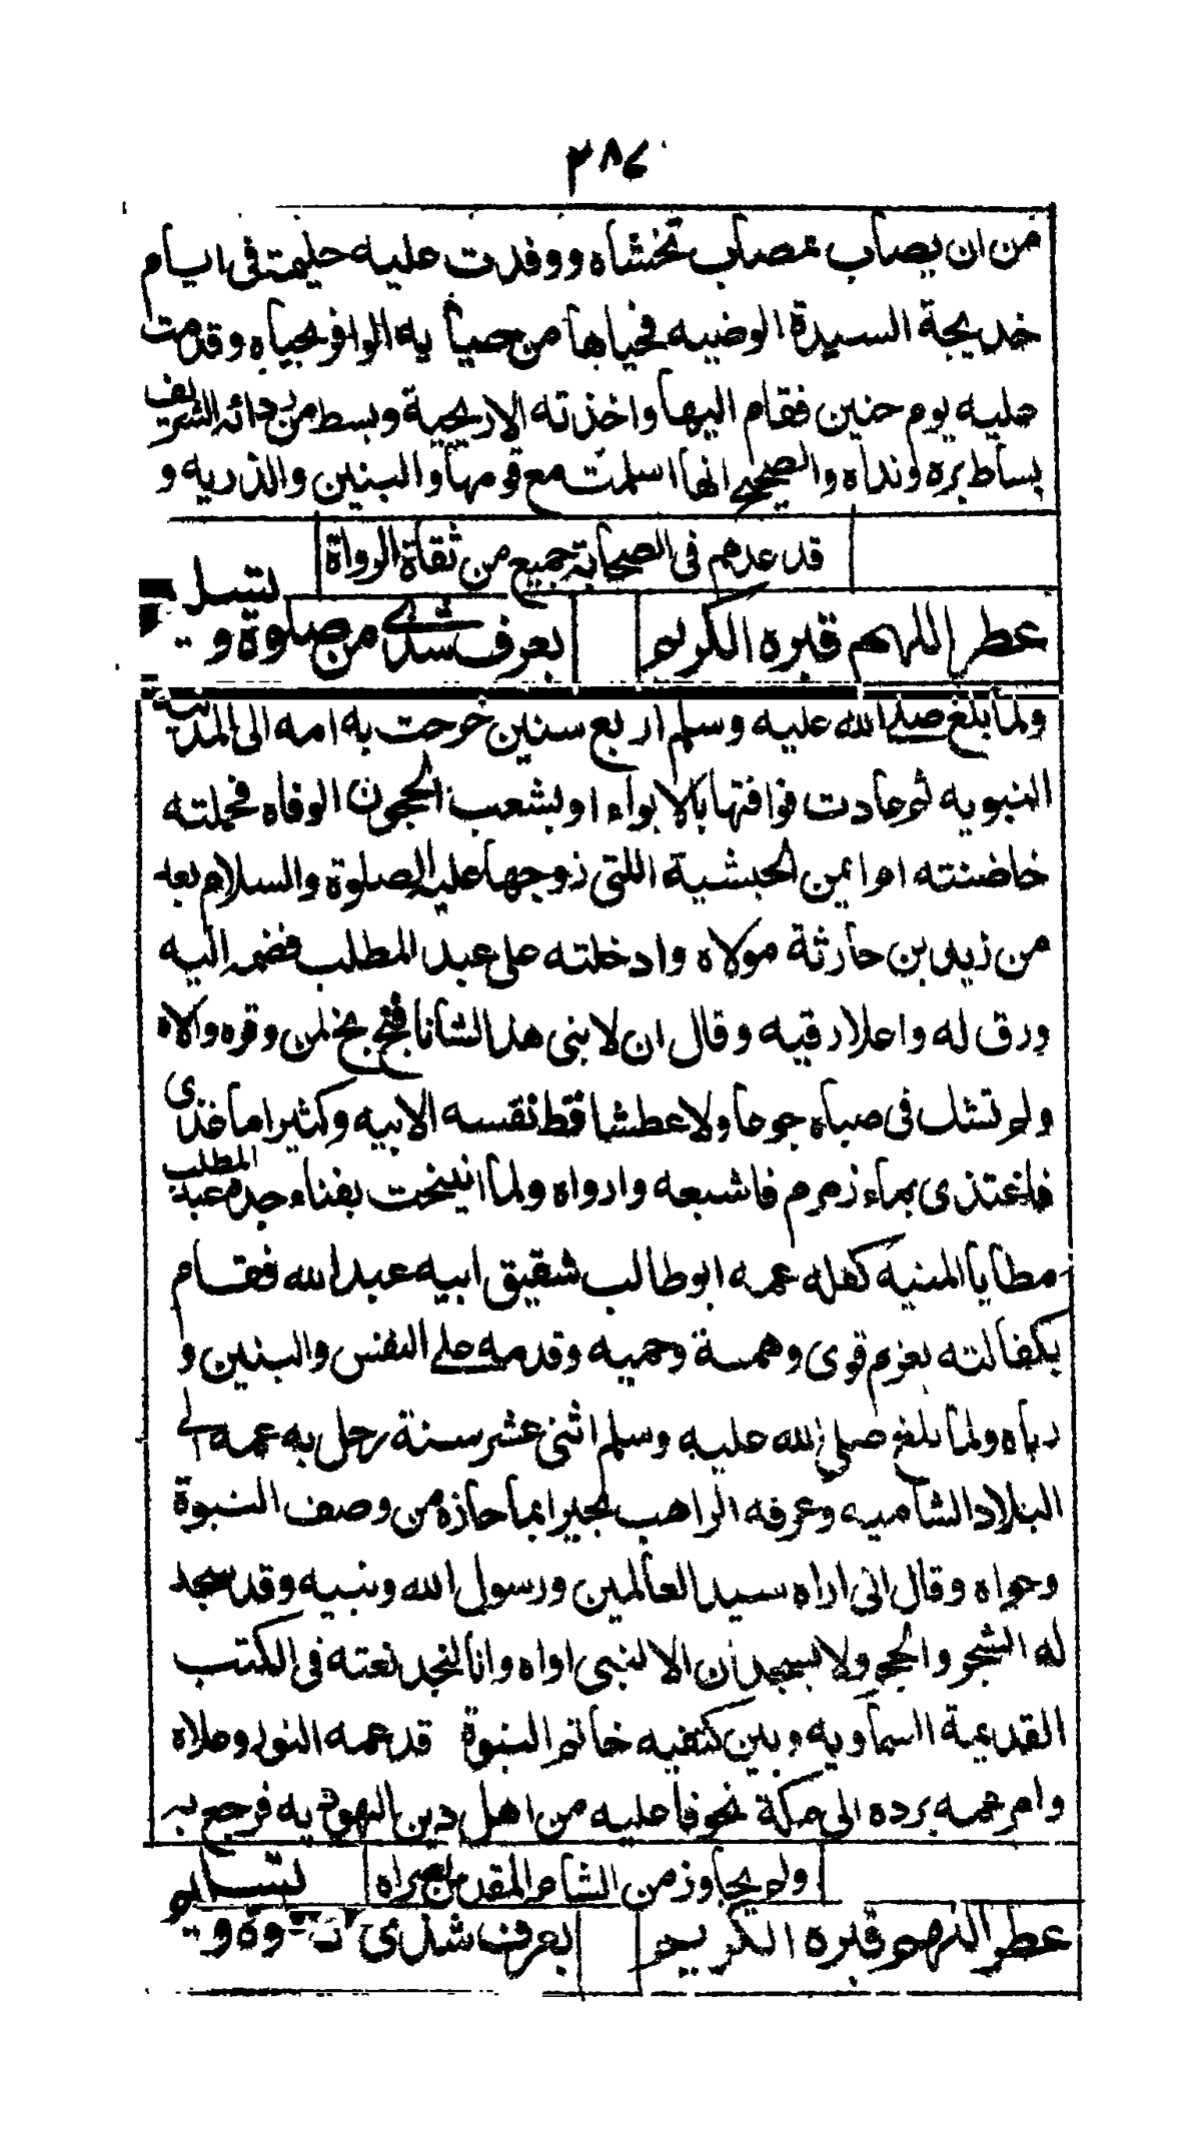 ٣٨٤
من ان يصاب بمصاب تخشاه ووفدت عليه حليمة فى ايام
خديجة السيدة الوضيه فحياها من حبائه الوافر بحياه وقدمت
عليه يوم حنين فقام اليها واخذته الاريحية وبسط من ردائه الشريف
بساط بره ونداه والصحيح انها اسلمت مع قومها والبنين والذريه و
قد عدهم فى الصحابة جميع من ثقاة الرواة
عطر اللهم قبره الكريم بعرف شذى من صلوة وتسليم
ولما بلغ صلى الله عليه وسلم اربع سنين خرجت به امه الى المدينة
النبويه ثم عادت فوافتها بالابواء او بشعب الحجون الوفاه فحملته
حاضنته ام ايمن الحبشية اللتى زوجها عليه الصلوة والسلام بعد
من زيد بن حارثة مولاه وادخلته على عبد المطلب فضمه اليه
ورق له واعلا رقيه وقال ان لابنى هذا لشانا فبخ بخ لمن وقره والاه
ولم تشك فى صباه جوعا ولا عطشا قط نفسه الابيه وكثيرا ما غذى
فاغتذى بماء زمزم فاشبعه وارواه ولما انيخت بفناء جده عبد المطلب
مطايا المنيه كفله عمه ابو طالب شقيق ابيه عبد الله فقام
بكفالته بعزم قوى وهمة وحميه وقدمه على النفس والبنين و
رباه ولما بلغ صلى الله عليه وسلم اثنى عشر سنة رحل به عمه الى
البلاد الشاميه وعرفه الراهب بحيرا بما حازه من وصف النبوة
وحواه وقال انى اراه سيد العالمين ورسول الله ونبيه وقد سجد
له الشجر والحجر ولا يسجدان الا لنبى اواه وانا لنجد نعته فى الكتب
القديمة السماويه وبين كتفيه خاتم النبوة قد عمه النور وعلاه
وامر عمه برده الى مكة تخوفا عليه من اهل دين اليهوديه فرجع به
ولم يجاوز من الشام المقدس بصراه
عطر اللهم قبره الكريم بعرف شذى وتسليم